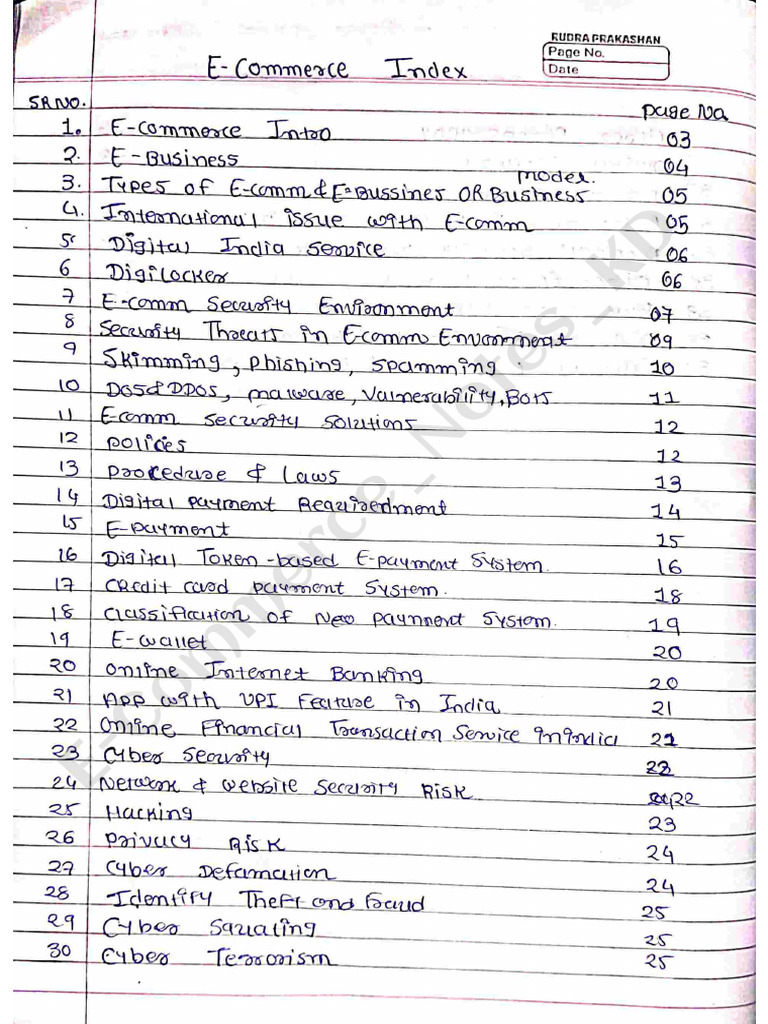 RUDRA PRAKASHAN
Page No.
Date
E-Commerce Index
SR NO. Page No.
1. E-commerce Intro 03
2. E-Business 04
model.
3. Types of E-comm & E-Bussines OR Business 05
4. International issue with E-comm 05
5 Digital India Service 06
6 Digilocker 06
7 E-comm Security Environment 07
8 Security Threats in E-comm Envornment 09
9 Skimming, Phishing, Spamming 10
10 DOS & DDOS, malware, Vulnerability, Bots 11
11 Ecomm security solutions 12
12 policies 12
13 Procedure & Laws 13
14 Digital Payment Requiredment 14
15 E-payment 15
16 Digital Token-based E-payment System. 16
17 Credit card payment System. 18
18 Classification of New payment System. 19
19 E-wallet 20
20 Online Internet Banking 20
21 App with UPI Feature in India 21
22 Online Financial Transaction Service in India 21
23 Cyber Security 22
24 Network & website Security Risk 22
25 Hacking 23
26 Privacy Risk 24
27 Cyber Defamation 24
28 Identify Theft and fraud 25
29 Cyber 25
30 Cyber Terrorism 25
E-Commerce_Notes_KD